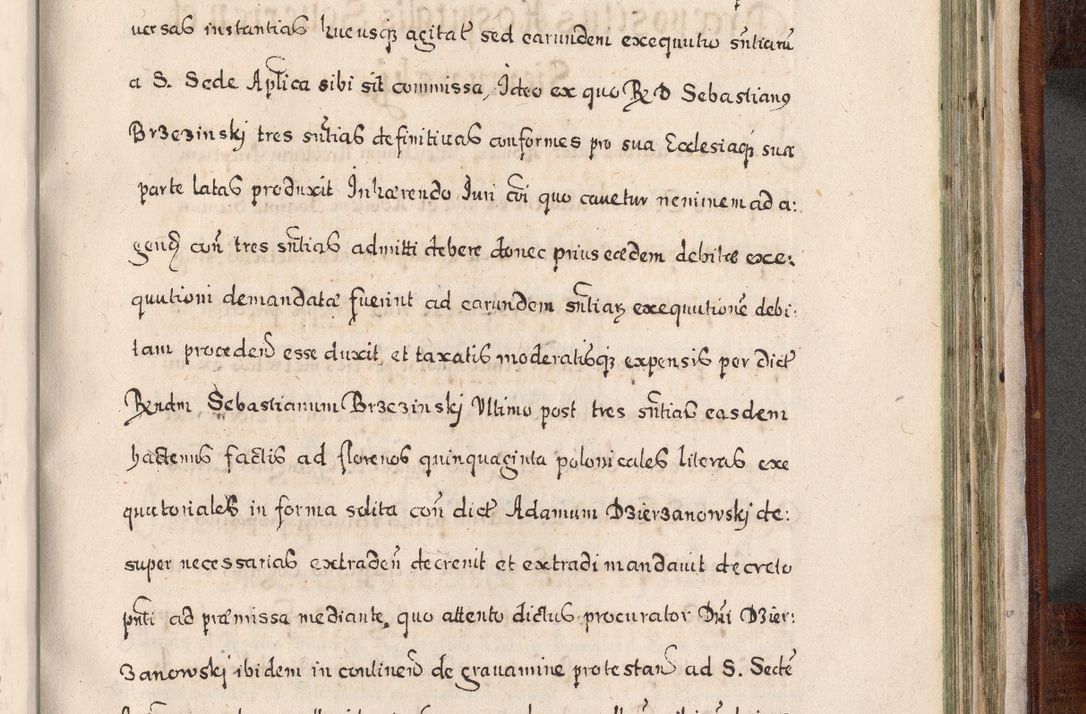 versas instantias hucusq; agitat sed earundem exequutio sn̄tiarū
a S. Sede Aplīca sibi sit commissa, Ideo ex quo R̄ D Sebastianꝰ
Brzezinski tres sn̄tias definitivas conformes pro sua Ecclesiaq; sua
parte latas produxit Inhærendo Juri cōi quo cavetur neminem ad a:
gend con̄ tres sn̄tias admitti debere donec prius eædem debitæ exe:
quutioni demandatæ fuerint ad earundem sn̄tiar exequutionē debi:
tam proceden esse duxit, et taxatis moderatisq; expensis per dict
Rendm Sebastianum Brzezinski Ultimo post tres sn̄tias easdem
hactenus factis ad florenos quinquaginta polonicales literas exe
quutoriales in forma solita con̄ dict Adamum Dzierzanowskj de:
super necessarias extraden̄ decrevit et extradi mandavit decreto
pn̄ti ad præmissa mediante, quo attento dictus procurator Dn̄i Dzier:
zanowskj ibidem in continen de gravamine protestan ad S. Sedē